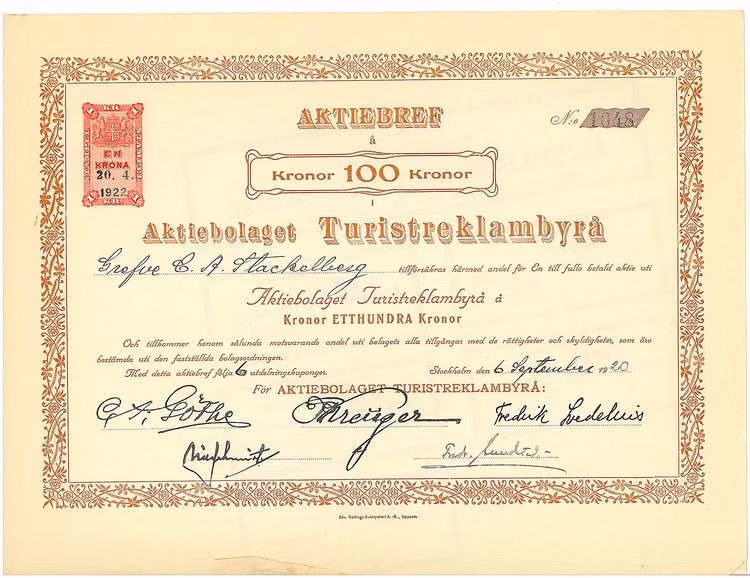 KR
1 1
EN
KRONA
20. 4.
1922
1 1
KR.
AKTIEBREF
No 1048
å
Kronor 100 Kronor
i
Aktiebolaget Turistreklambyrå
Grefve C. A. Stackelberg tillförsäkras härmed andel för En till fullo betald aktie uti
Aktiebolaget Turistreklambyrå å
Kronor ETTHUNDRA Kronor
Och tillkommer honom sålunda motsvarande andel uti bolagets alla tillgångar med de rättigheter och skyldigheter, som äro
bestämda uti den fastställda bolagsordningen.
Med detta aktiebref följa 6 utdelningskuponger. Stockholm den 6 September 1920
För AKTIEBOLAGET TURISTREKLAMBYRÅ:
C A, Göthe Kreuger Fredrik